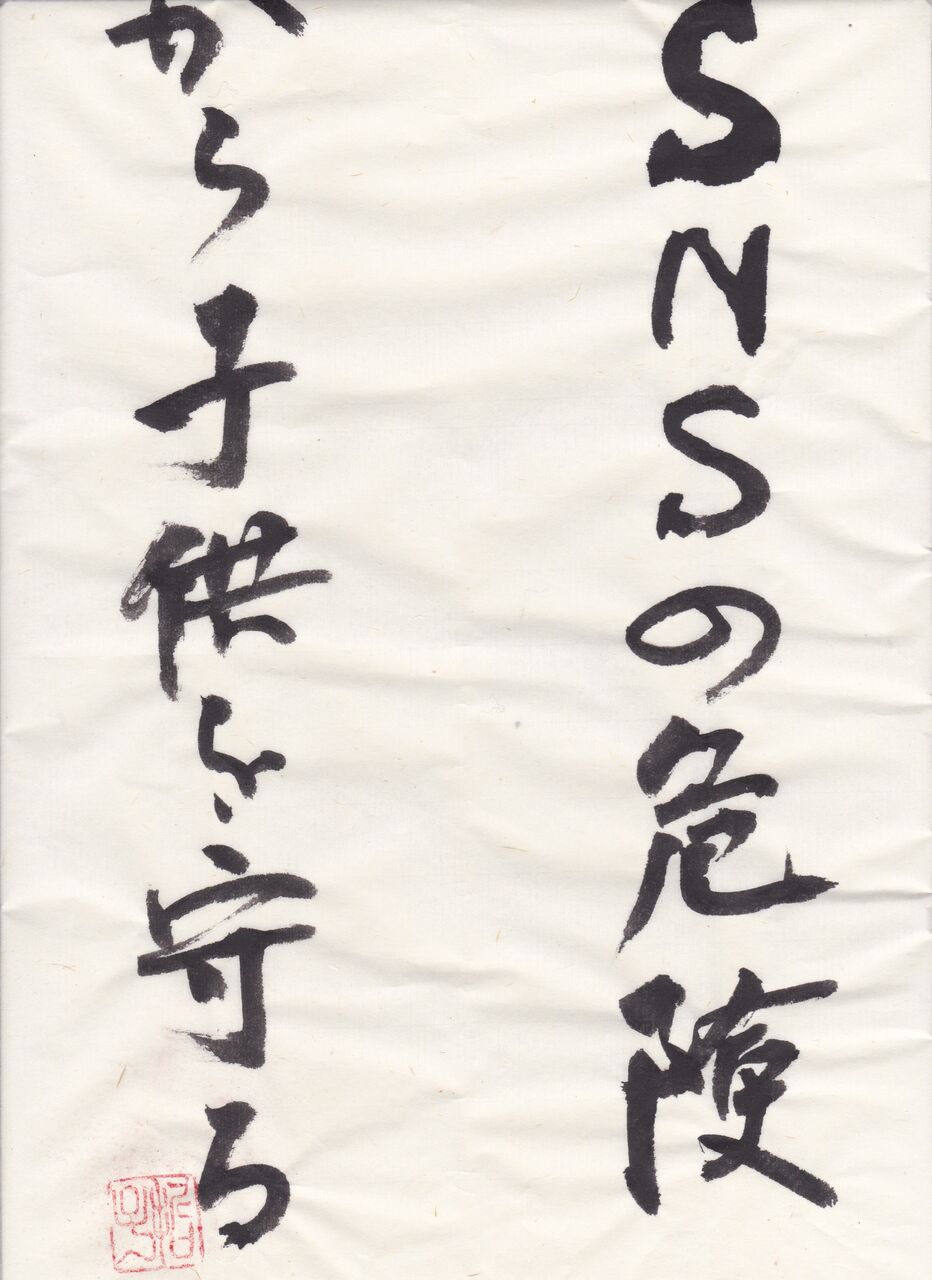 SNSの危険
から子供を守る